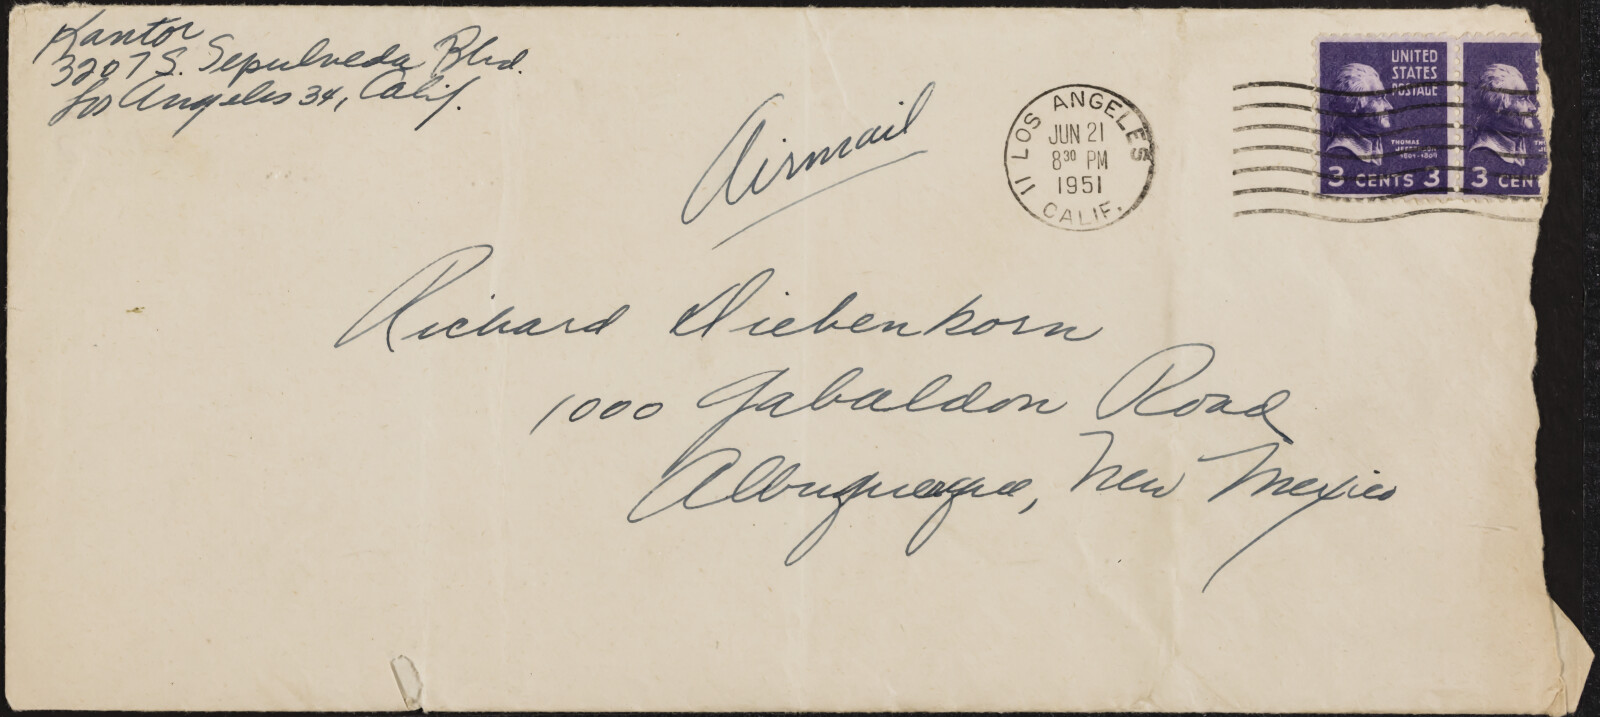 Kantor
3207 S. Sepulveda Blvd.
Los Angeles 34, Calif.
Airmail
LOS ANGELES
JUN 21
8 30 PM
1951
11
CALIF.
UNITED
STATES
POSTAGE
THOMAS
JEFFERSON
1801-1809
3 CENTS 3
TH
JE
3 CENT
Richard Diebenkorn
1000 Gabaldon Road
Albuquerque, New Mexico